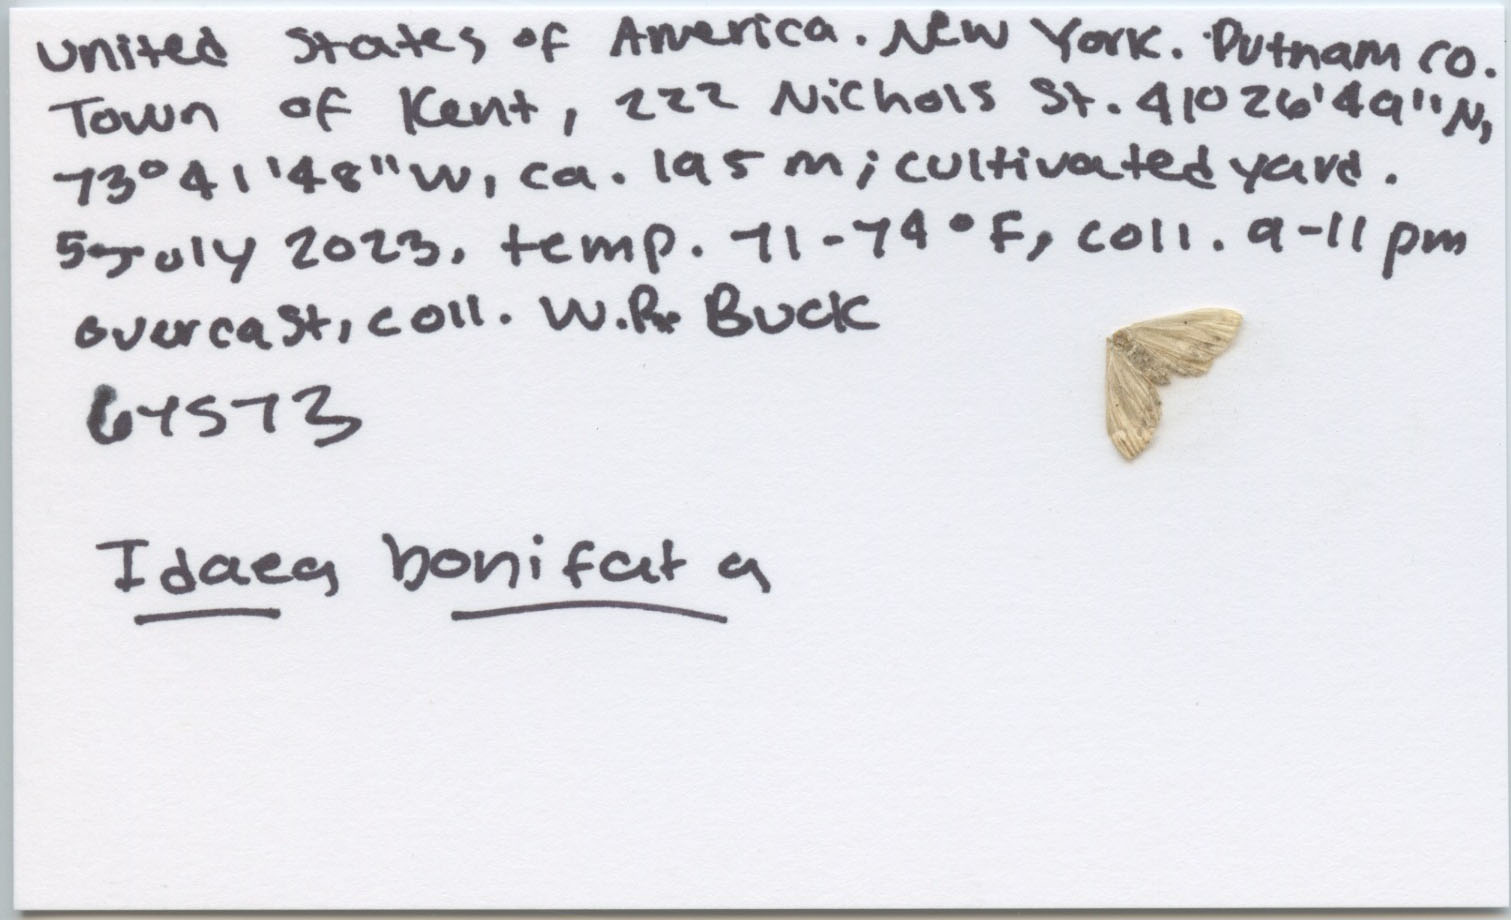 United States of America. New York. Putnam Co.
Town of Kent, 222 Nichols St. 41° 26'49"N,
73°41'48"W, ca. 195 m; cultivated yard.
5 July 2023, temp. 71-74°F, coll. 9-11 pm
overcast, coll. W.R. Buck
67573
Idaea bonifata